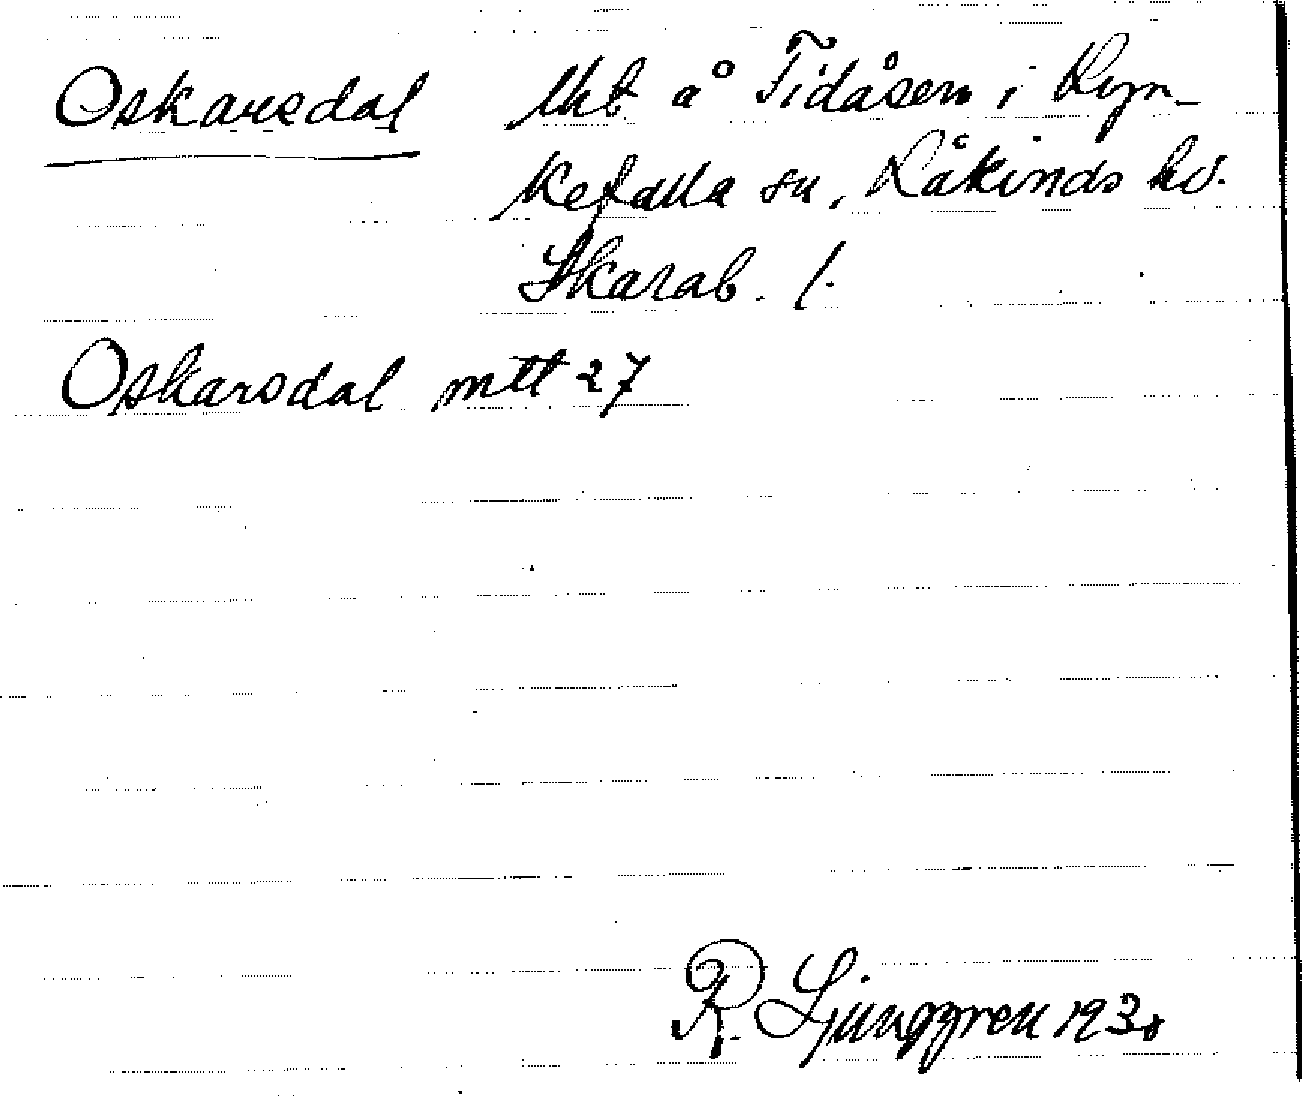 Oskarsdal Uht å Tidåsen i Lyrk-
kefalla sn, Kåkinds hd.
Skarab. l.
Oskarsdal mtt 27
R. Ljunggren 1930